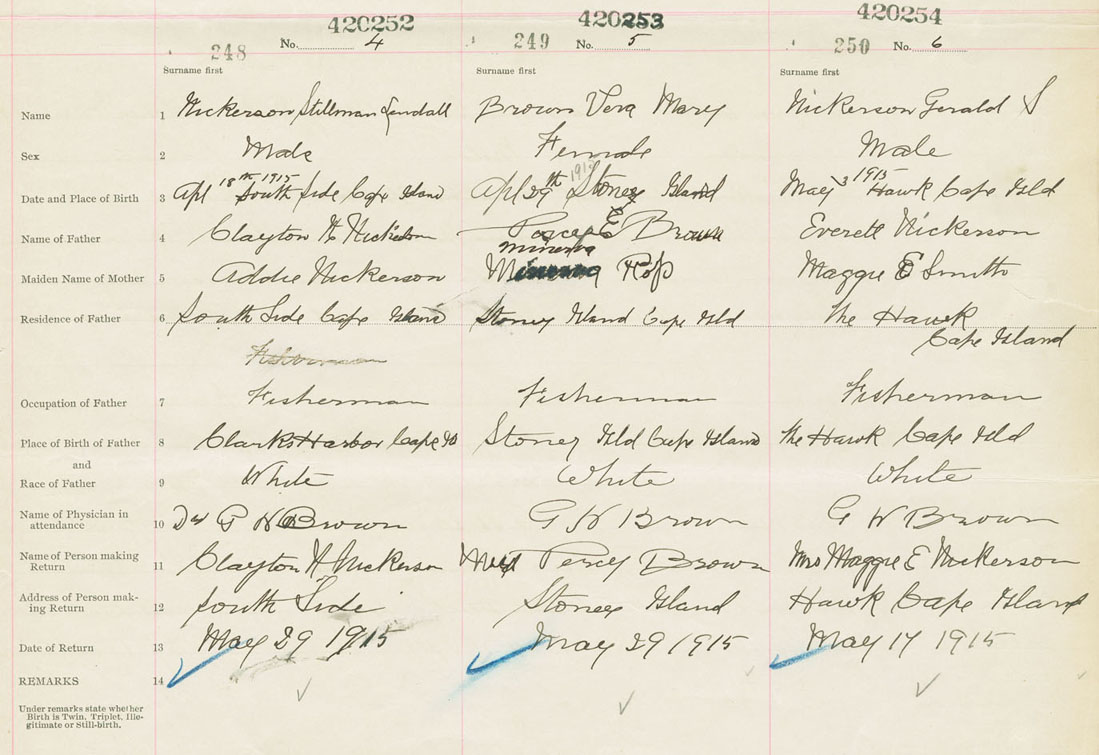 420252 420253 420254
248 No. 4 249 No. 5 250 No. 6
Surname first Surname first Surname first
Name 1 Nickerson Stillman Kendall Brown Vera Mary Nickerson Gerald S
Sex 2 Male Female Male
Date and Place of Birth 3 Apl 18th 1915 South Side Cape Island Apl 29th 1915 Stoney Island May 3 1915 Hawk Cape Isld
Name of Father 4 Clayton H Nickerson Percy E Brown Everett Nickerson
Minerva
Maiden Name of Mother 5 Addie Nickerson Ross Maggie E Smith
Residence of Father 6 South Side Cape Island Stoney Island Cape Isld The Hawk
Cape Island
Fisherman
Occupation of Father 7 Fisherman Fisherman Fisherman
Place of Birth of Father 8 Clarks Harbor Cape Is Stoney Isld Cape Island The Hawk Cape Isld
and
Race of Father 9 White White White
Name of Physician in
attendance 10 Dr G W Brown G W Brown G W Brown
Name of Person making
Return 11 Clayton H Nickerson Percy Brown Mrs Maggie E Nickerson
Address of Person mak-
ing Return 12 South Side Stoney Island Hawk Cape Island
Date of Return 13 May 29 1915 May 29 1915 May 17 1915
REMARKS 14
Under remarks state whether
Birth is Twin, Triplet, Ille-
gitimate or Still-birth.